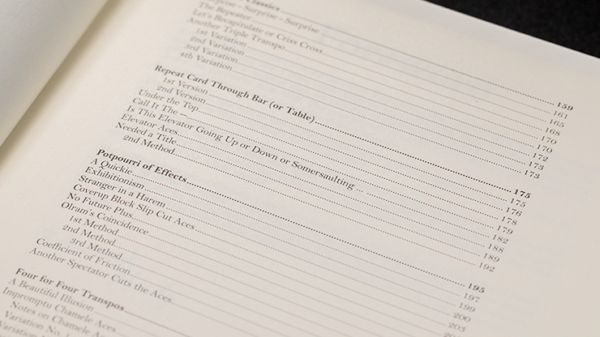 Classics 159
Surprise - Surprise 161
The Repeater 165
Let's Recapitulate or Criss Cross 168
Another Triple Transpo 170
1st Variation 170
2nd Variation 172
3rd Variation 173
4th Variation 173
Repeat Card Through Bar (or Table) 175
1st Version 175
2nd Version 176
Under the Top 178
Call It The 179
Is This Elevator Going Up or Down or Somersaulting ... 182
Elevator Aces 188
Needed a Title 189
2nd Method 192
Potpourri of Effects 195
A Quickie 197
Exhibitionism 199
Stranger in a Harem 200
Coverup Block Slip Cut Aces 203
No Future Plus
Olram's Coincidence
1st Method
2nd Method
3rd Method
Coefficient of Friction
Another Spectator Cuts the Aces
Four for Four Transpos
A Beautiful Illusion
Impromptu Chamele Aces
Notes on Chamele Aces
Variation No.